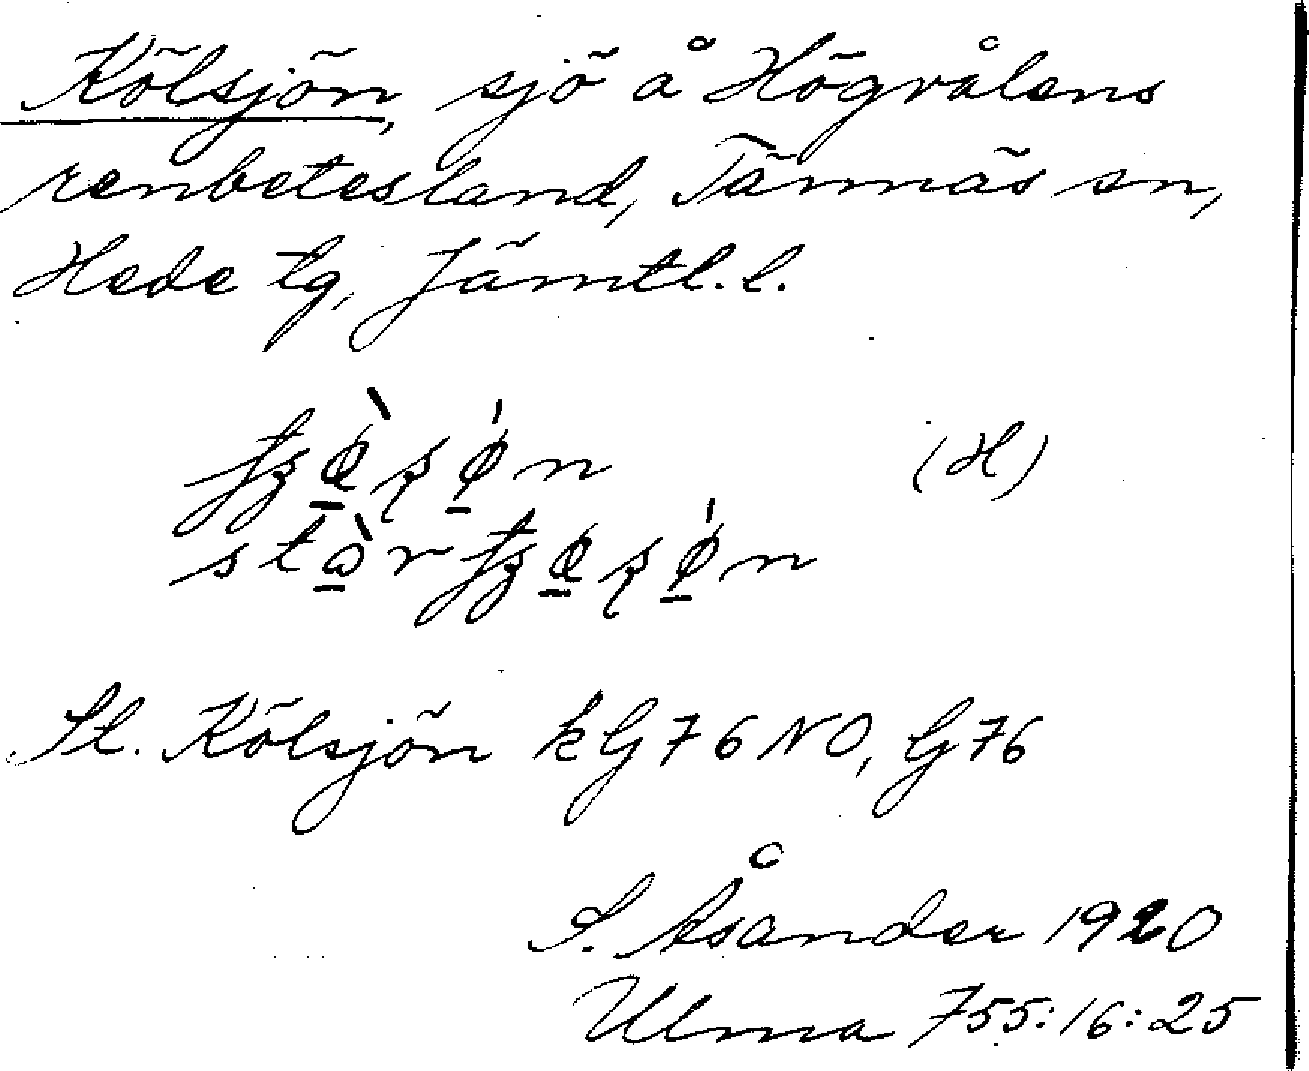 Kölsjön, sjö å Högvålens
renbetesland, Tännäs sn,
Hede tg, Jämtl. l.
(H)
St. Kölsjön kG76NO, G76
S. Åsander 1920
Ulma 755:16:25